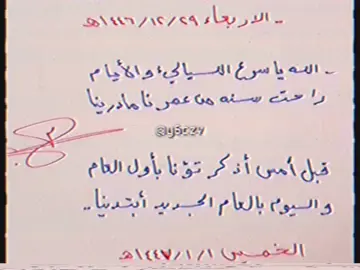 - الاربعاء ١٤٤٦/١٢/٢٩هـ
- الله يا سرع الليالي والأيام
راحت سنه من عمرنا مادرينا
@y5czy
قبل أمس أذكر تونا بأول العام
واليوم بالعام الجديد أبتدينا..
الخميس ١٤٤٧/١/١هـ